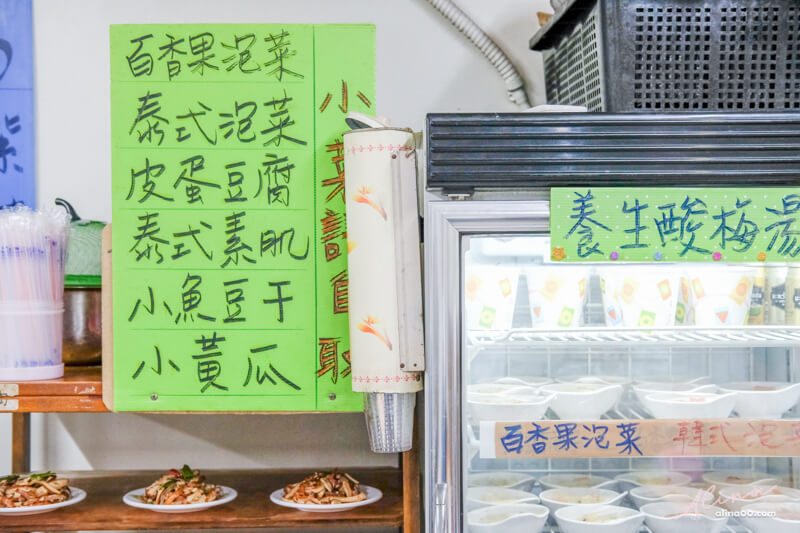 百香果泡菜
泰式泡菜
皮蛋豆腐
泰式素肌
小魚豆干
小黃瓜
小菜請自取
養生酸梅湯
百香果泡菜 韓式泡菜
紫
alina00.com